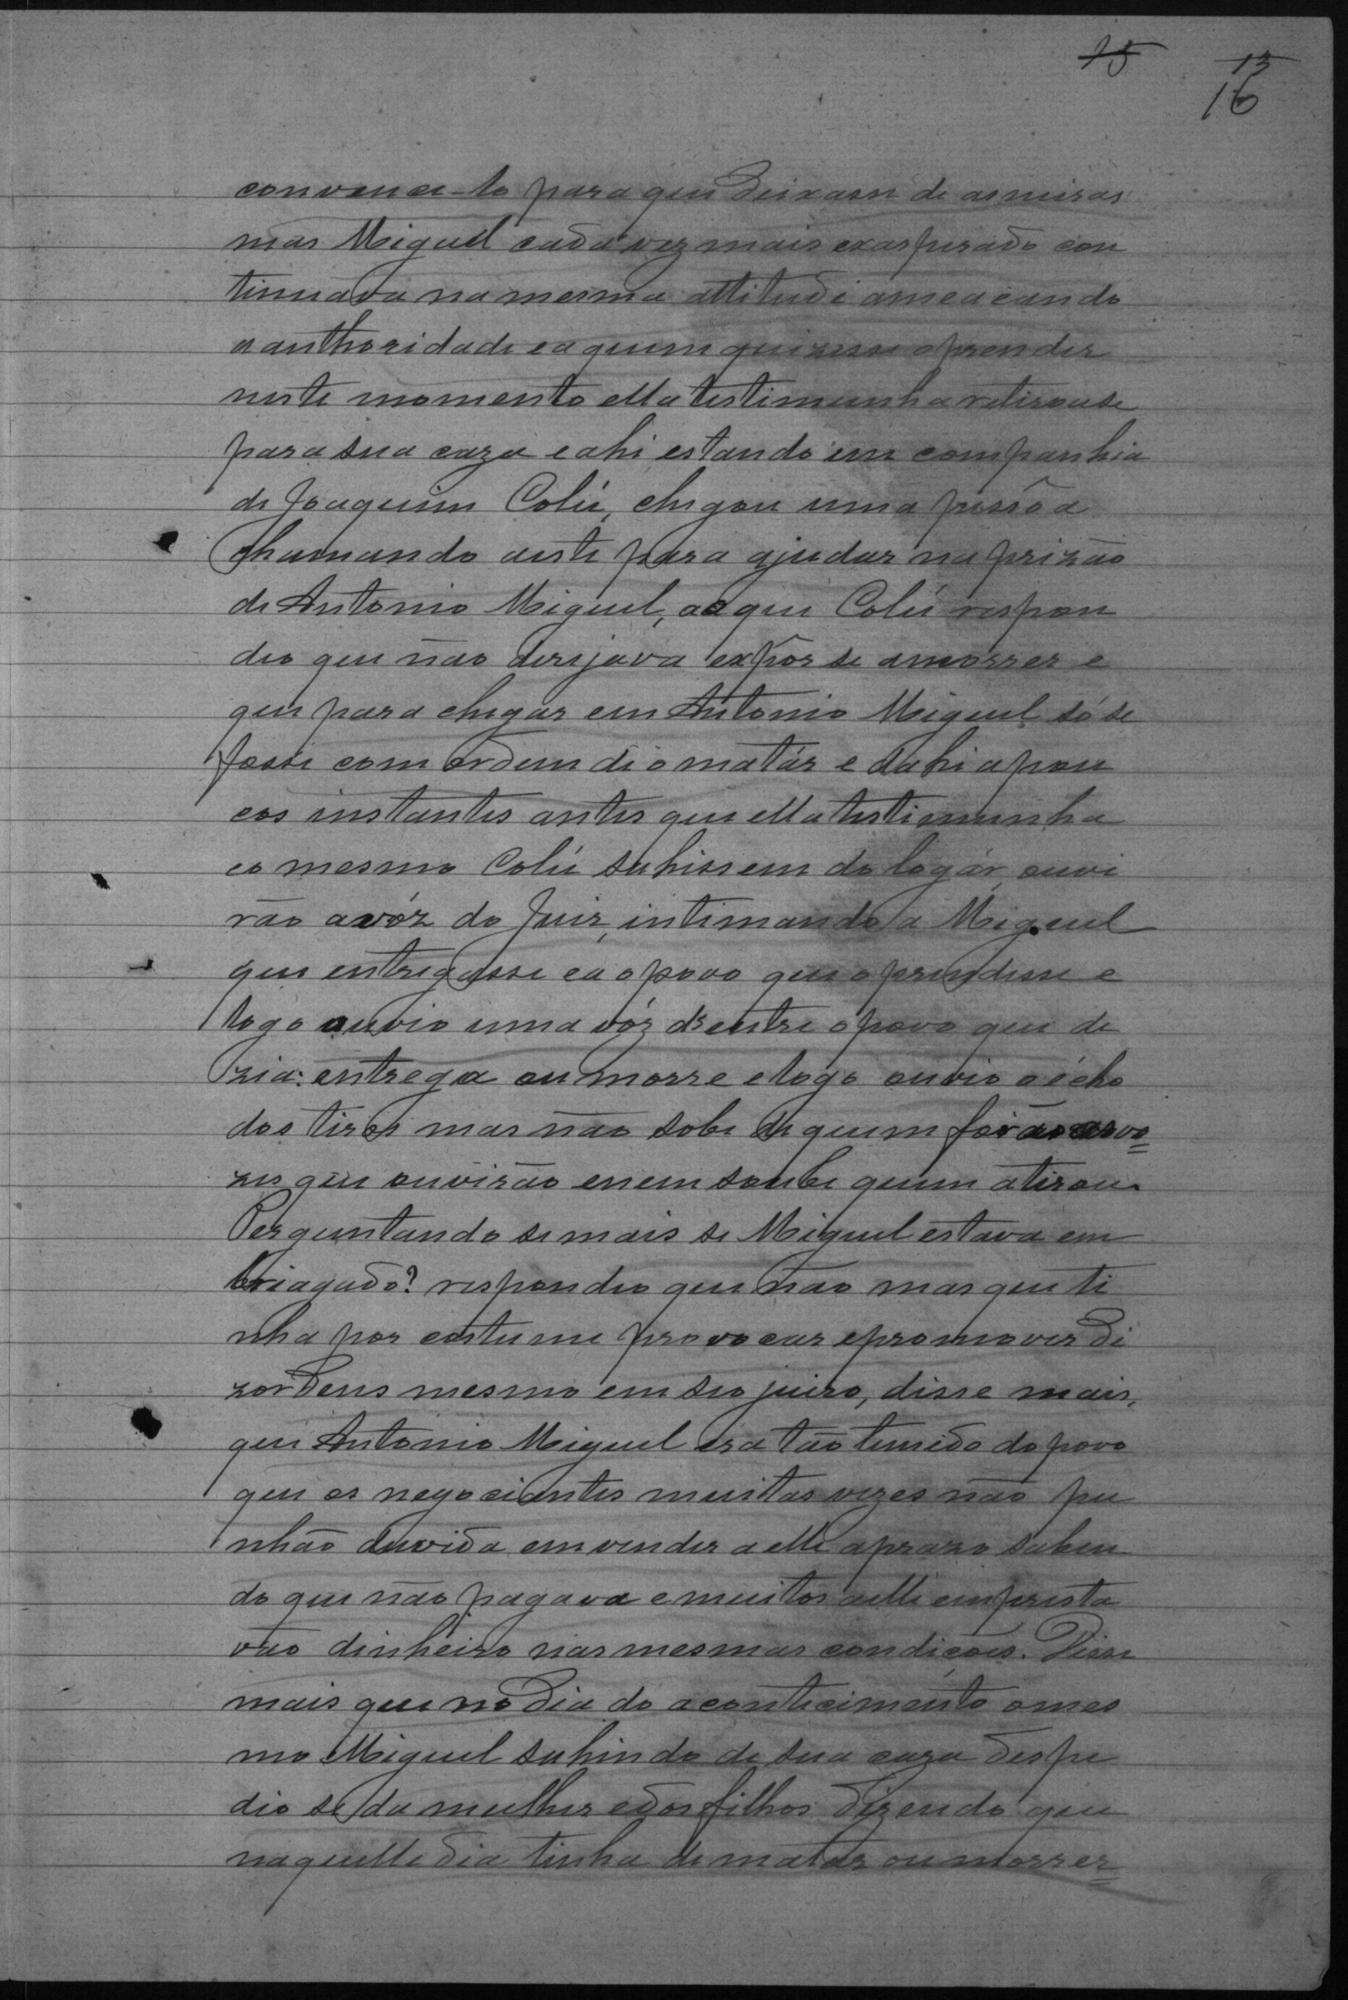 15 13
16
convence-lo para que deixasse de asneiras
mas Miguel cada vez mais exasperado con
tinuava na mesma attitude ameaçando
a authoridade e a quem quizesse o prender
neste momento ella testimunha retirou se
para sua caza e ahi estando em companhia
de Joaquim Colú, chegou uma pessôa
chamando a este para ajudar na prizão
de Antonio Miguel, ao que Colú respon
deo que não desejava expôr se a morrer e
que para chegar em Antonio Miguel só se
fosse com ordem de o matár e dahi a pou
cos instantes antes que ella testimunha
e o mesmo Colú sahissem do logár, ouvi
rão a vóz do Juiz, intimando a Miguel
que entregasse e a o povo que o prendesse e
logo ouvio uma vóz d'entre o povo que de
zia: entrega ou morre e logo ouvio o écho
dos tiros mas não sobe de quem forão as vo=
zes que ouvirão e nem soube quem atirou.
Perguntando se mais se Miguel estava em
briagado? respondeo que não mas que ti
nha por costume provocar e promover di
zordens mesmo em seo juizo, disse mais,
que Antonio Miguel era tão temido do povo
que os negociantes muitas vezes não pu
nhão duvida em vender a elle a prazo saben
do que não pagava e muitos a elle empresta
vão dinheiro nas mesmas condições. Disse
mais que no dia do acontecimento o mes
mo Miguel sahindo de sua caza despe
dio se da mulher e dos filhos dizendo que
naquelle dia tinha de matar ou morrer=